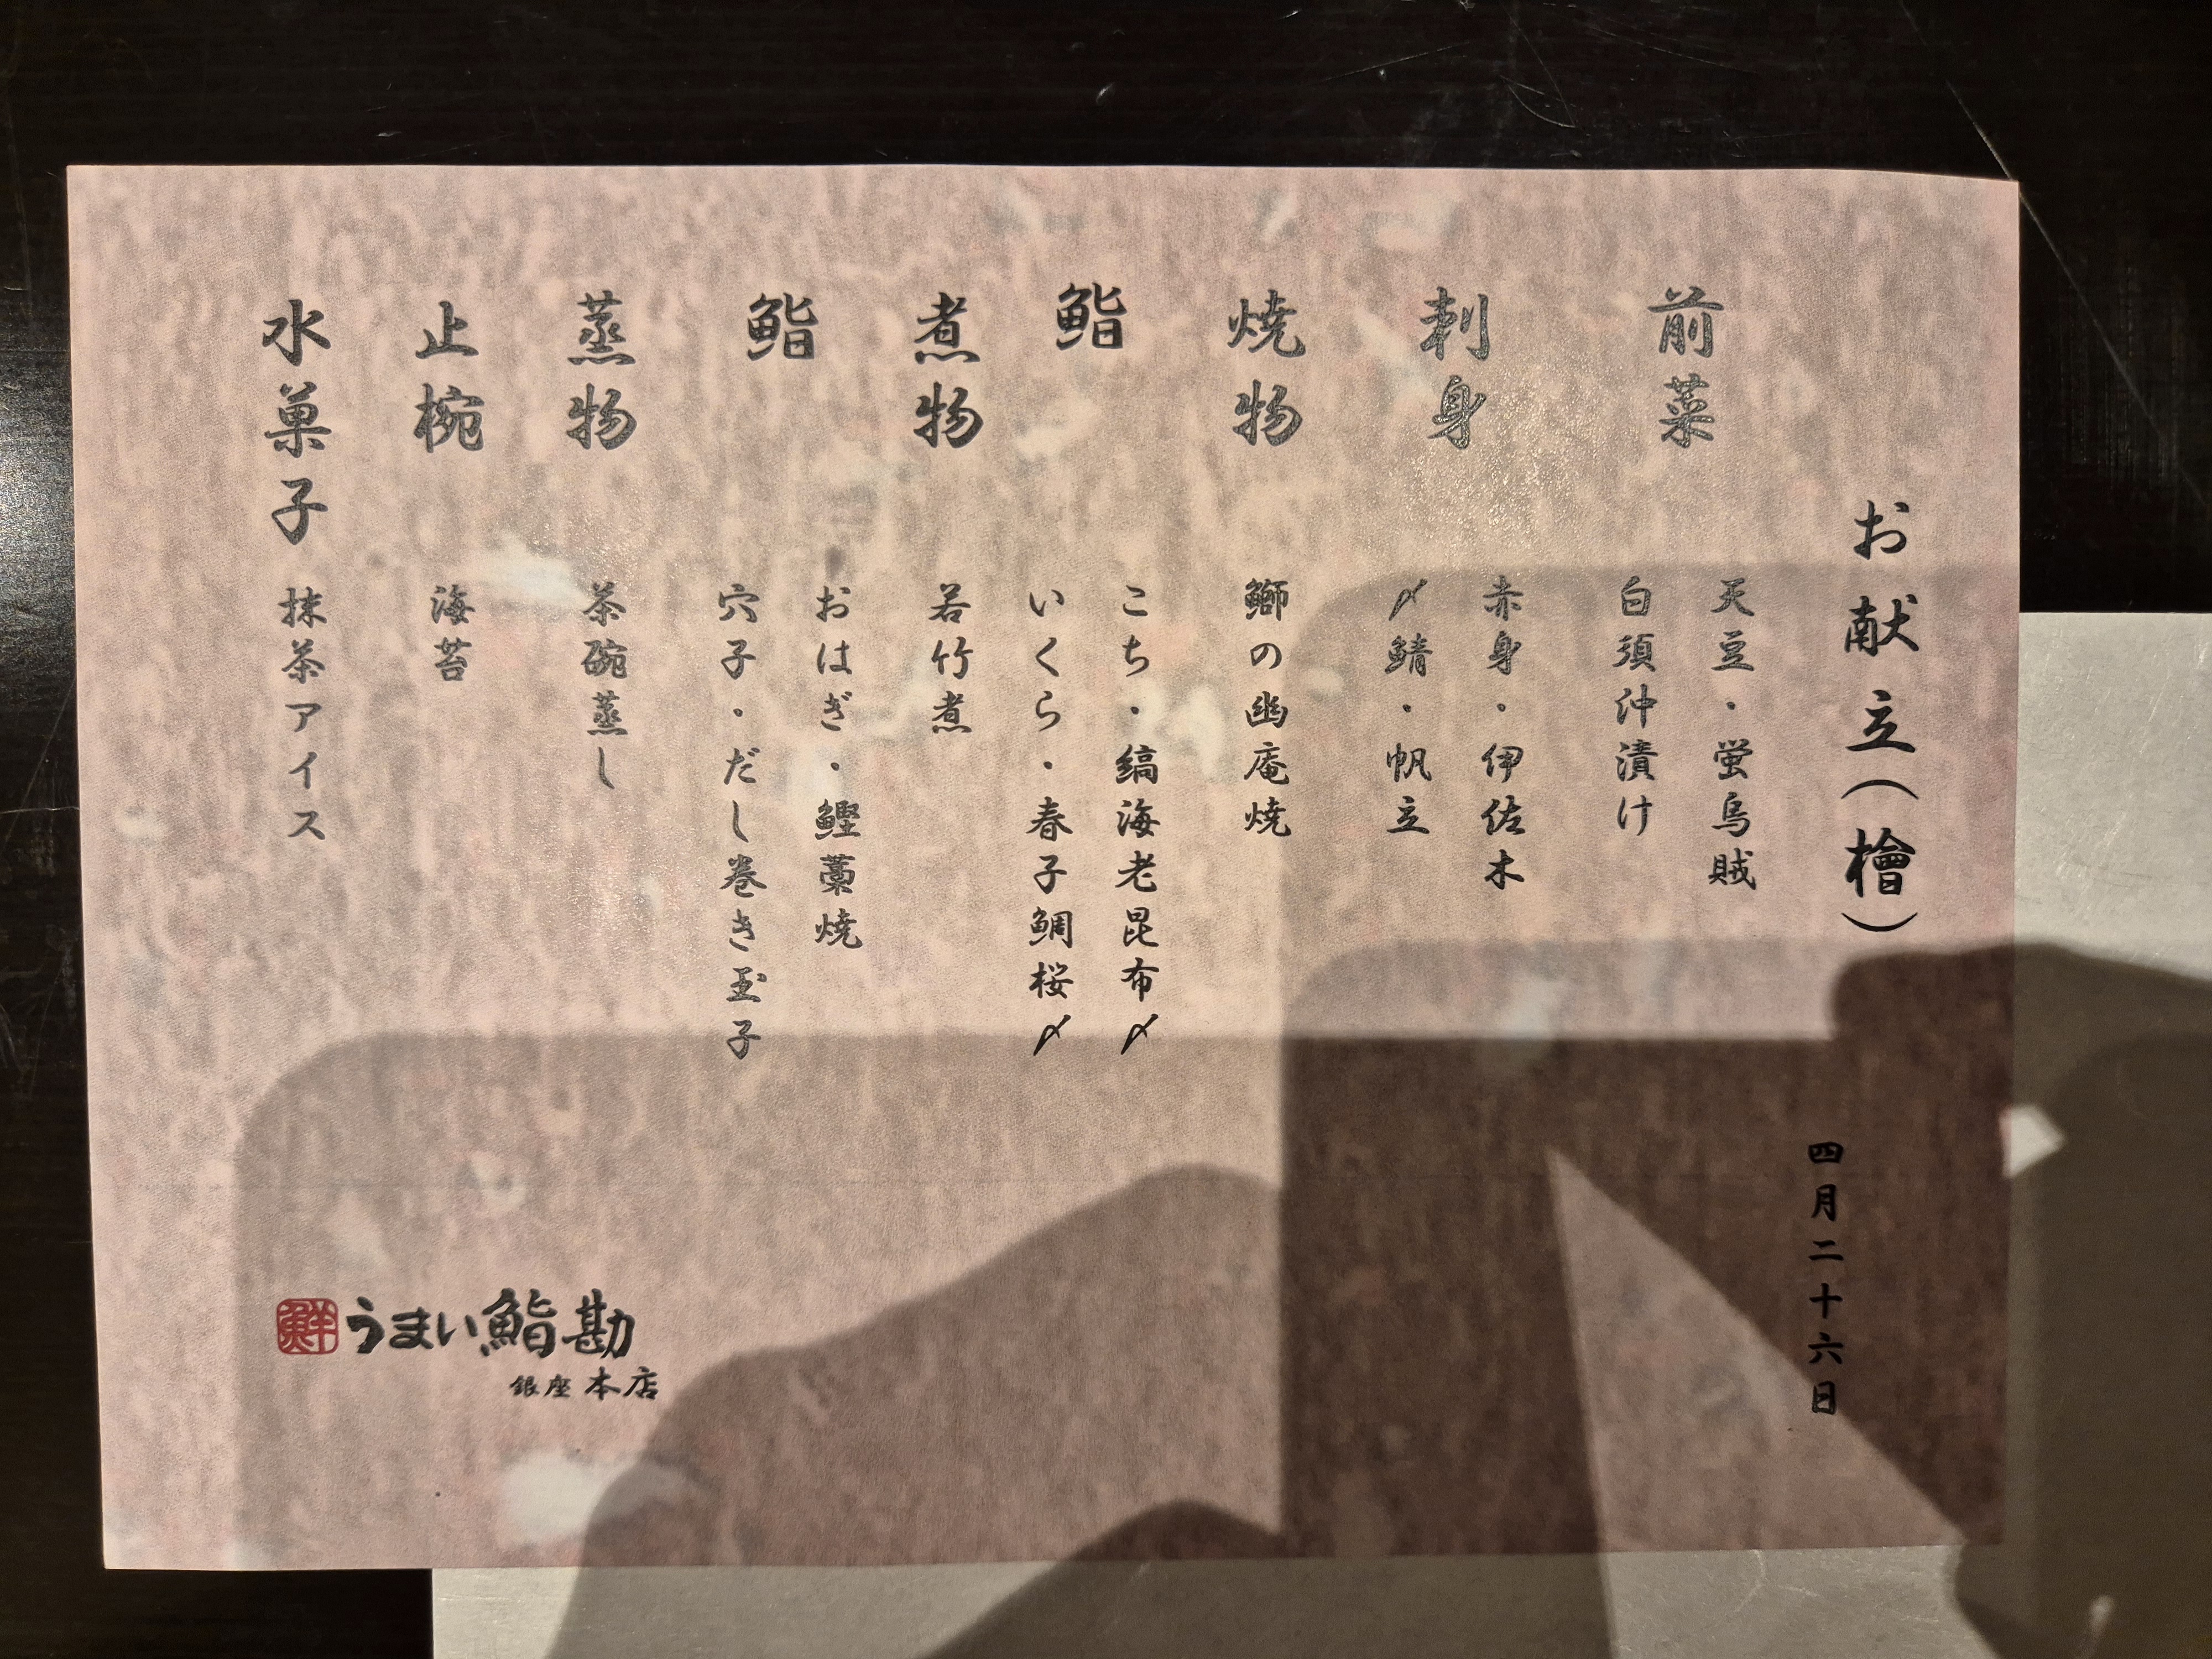 お献立(檜)
四月二十六日
前菜
天豆・蛍烏賊
白須沖漬け
刺身
赤身・伊佐木
〆鯖・帆立
焼物
鰤の幽庵焼
鮨
こち・縞海老昆布〆
いくら・春子鯛桜〆
煮物
若竹煮
鮨
おはぎ・鰹藁焼
穴子・だし巻き玉子
蒸物
茶碗蒸し
止椀
海苔
水菓子
抹茶アイス
鮮
うまい鮨勘
銀座本店